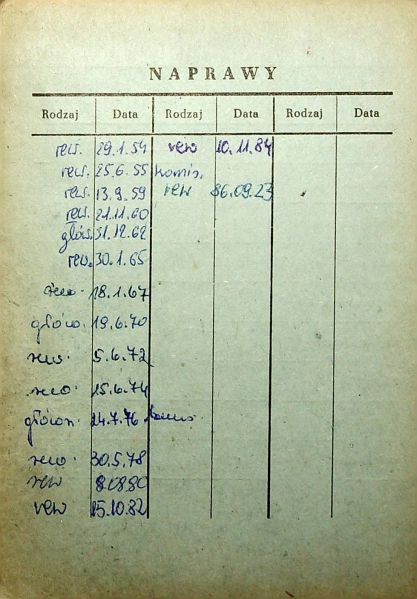 NAPRAWY
Rodzaj Data Rodzaj Data Rodzaj Data
rew. 29.1.54 rew 10.11.84
rew. 25.6.55 komis.
rew. 13.9.59 rew 86.09.23
rew. 21.11.60
głów. 31.12.62
rew. 30.1.65
rew. 18.1.67
główn. 19.6.70
rew. 5.6.72
rew. 15.6.74
główn. 24.7.76
rew. 30.5.78
rew 8.08.80
rew 15.10.82